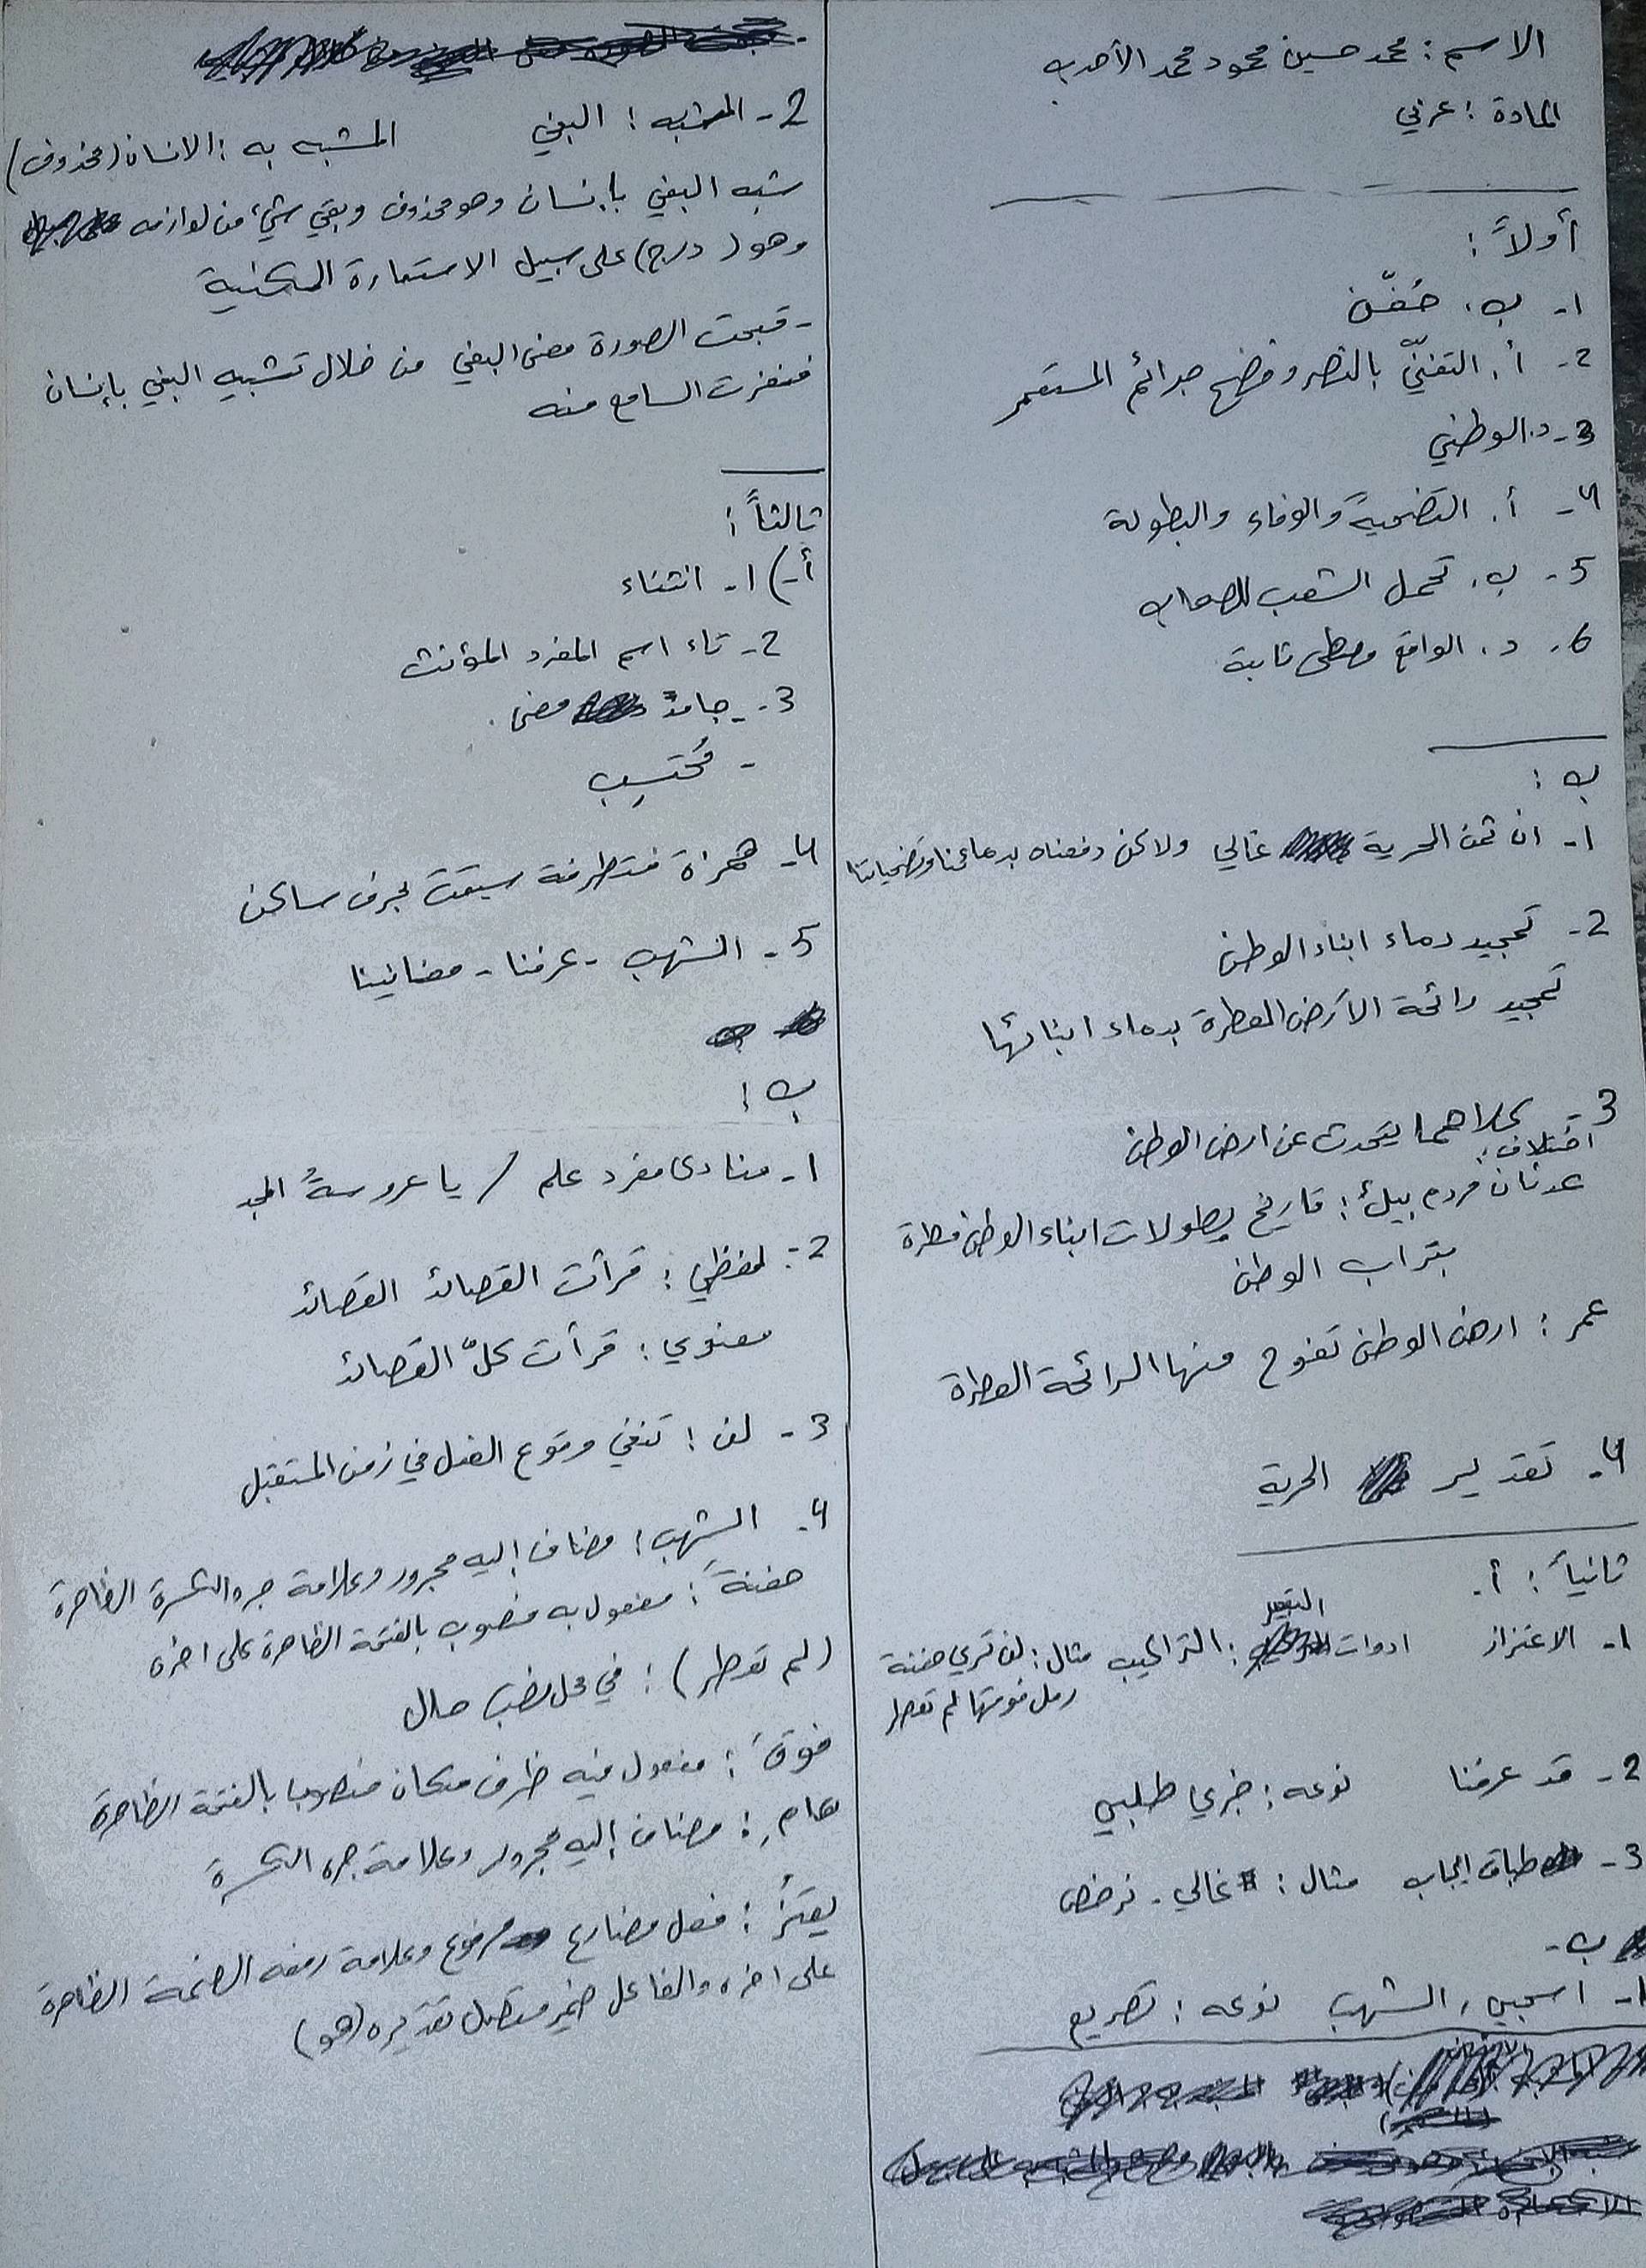 الاسم : محمد حسين محمود محمد الأحدب
المادة : عربي
أولاً :
1- ب. حُفَن
2- أ. التغنّي بالنصر وفضح جرائم المستعمر
3- د. الوطني
4- أ. التضحية والوفاء والبطولة
5- ب. تحمل الشعب للصعاب
6- د. الواقع ومعطى ثابتة
ب :
1- ان ثمن الحرية غالي ولاكن دفعناه بدمائنا وتضحياتنا
2- تمجيد دماء ابناء الوطن
تمجيد رائحة الأرض العطرة بدماء ابنائها
3- كلاهما يتحدث عن ارض الوطن
اختلاف :
عدنان مردم بيك : تاريخ بطولات ابناء الوطن مسطرة
بتراب الوطن
عمر : ارض الوطن تفوح منها الرائحة العطرة
4- تقدير الحرية
ثانياً : أ-
1- الاعتزاز ادوات التعبير : التراكيب مثال : لن تري حفنة
رمل فوقها لم تعطر
2- قد عرفنا نوعه : خبري طلبي
3- طباق ايجاب مثال : غالي - نرخص
ب-
1- اسحبي , الشهب نوعه : تصريع
2- المشبه : البغي المشبه به : الانسان (محذوف)
شبه البغي بإنسان وهو محذوف وبقي شيء من لوازمه
وهو (درج) على سبيل الاستعارة المكنية
- قبحت الصورة معنى البغي من خلال تشبيه البغي بإنسان
فنفرت السامع منه
ثالثاً :
أ-) 1- انتشاء
2- تاء اسم المفرد المؤنث
3- - جامد معنى .
- مُحتسِب
4- همزة متطرفة سبقت بحرف ساكن
5- الشهب - عرفنا - مغانينا
ب :
1- منادى مفرد علم / يا عروسةُ المجد
2- لفظي : قرأت القصائد القصائد
معنوي : قرأت كلّ القصائد
3- لن : تنفي وقوع الفعل في زمن المستقبل
4- الشهب : مضاف إليه مجرور وعلامة جره الكسرة الظاهرة
حفنةَ : مفعول به منصوب بالفتحة الظاهرة على اخره
(لم تعطر) : في محل نصب حال
فوقَ : مفعول فيه ظرف مكان منصوب بالفتحة الظاهرة
هامِ : مضاف إليه مجرور وعلامة جره الكسرة
يعتزُ : فعل مضارع مرفوع وعلامة رفعه الضمة الظاهرة
على اخره والفاعل ضمير مستتر تقديره (هو)